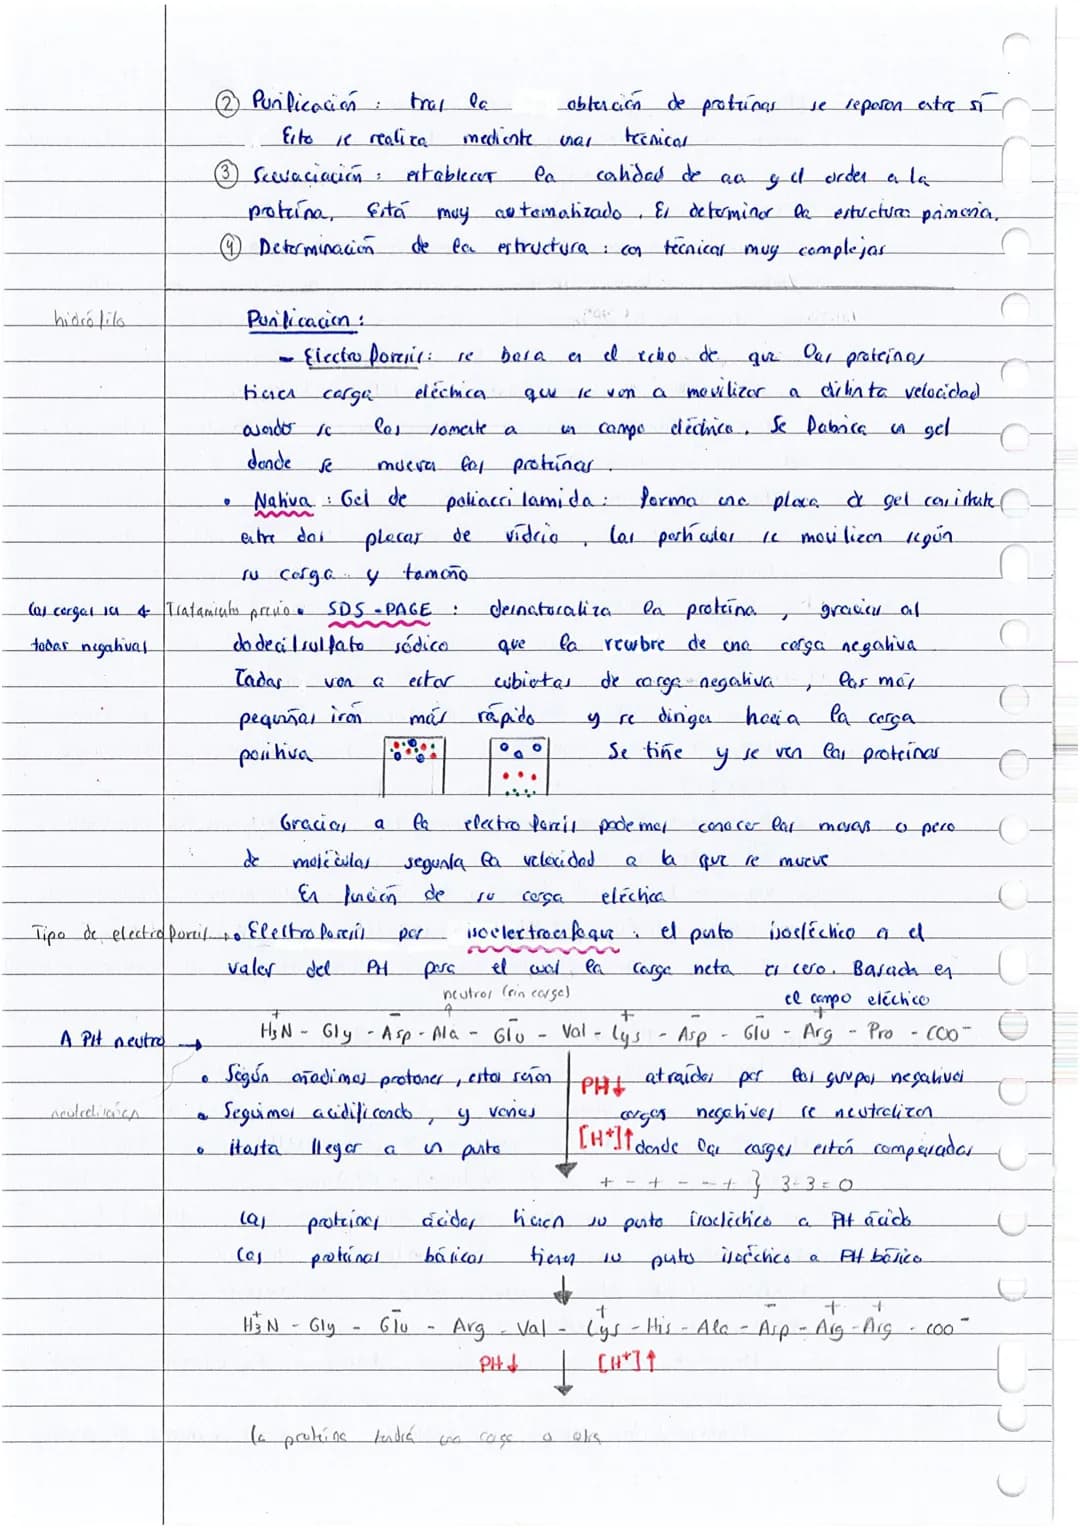 ② Purificación : tras la obtención de proteínas se separan entre sí
Esto se realiza mediante unas técnicas
③ Secuaciación : establecer la cantidad de aa y el orden a la
proteína. Está muy automatizado. Es determinar la estructura primaria.
④ Determinación de la estructura : con técnicas muy complejas
hidrófilo
Purificacion :
- Electroforesis: se basa en el echo de que las proteínas
tienen carga eléctrica que se van a movilizar a distinta velocidad
cuando se las somete a un campo eléctrico. Se fabrica un gel
donde se mueven las proteínas.
• Nativa : Gel de poliacrilamida : forma una placa de gel consistente
entre dos placas de vidrio, las partículas se movilizan según
su carga y tamaño
Las cargas sea todas negativas
Tratamiento previo • SDS-PAGE : desnaturaliza la proteína, gracias al
dodecilsulfato sódico que la recubre de una carga negativa
Todas van a estar cubiertas de carga negativa, las más
pequeñas irán más rápido y se dirigen hacia la carga
positiva Se tiñe y se ven las proteínas
Gracias a la electroforesis podemos conocer las masas o peso
de moléculas segunla la velocidad a la que se mueve
En función de su carga eléctrica
Tipo de electroforesis • Electroforesis por isoelectroenfoque : el punto isoeléctrico es el
valor del PH para el cual la carga neta es cero. Basada en
el campo eléctrico
neutros (sin carga)
A PH neutro → H₃⁺N - Gly - Asp⁻ - Ala - Glu⁻ - Val - Lys⁺ - Asp⁻ - Glu⁻ - Arg⁺ - Pro - COO⁻
• Según añadimos protones, estos serán PH↓ atraídos por los grupos negativos
neutralización • Seguimos acidificando, y varias cargas negativas se neutralizan
• Hasta llegar a un punto [H⁺]↑ donde las cargas están compensadas
+ - + - - + } 3-3=0
Las proteínas ácidas tienen su punto isoeléctrico a PH ácido
Las proteínas básicas tienen su punto isoeléctrico a PH básico
↓
H₃⁺N - Gly - Glu⁻ - Arg - Val - Lys⁺ - His - Ala - Asp⁻ - Arg⁺ - Arg⁺ - COO⁻
PH↓ [H⁺]↑
La proteína tendrá una carga